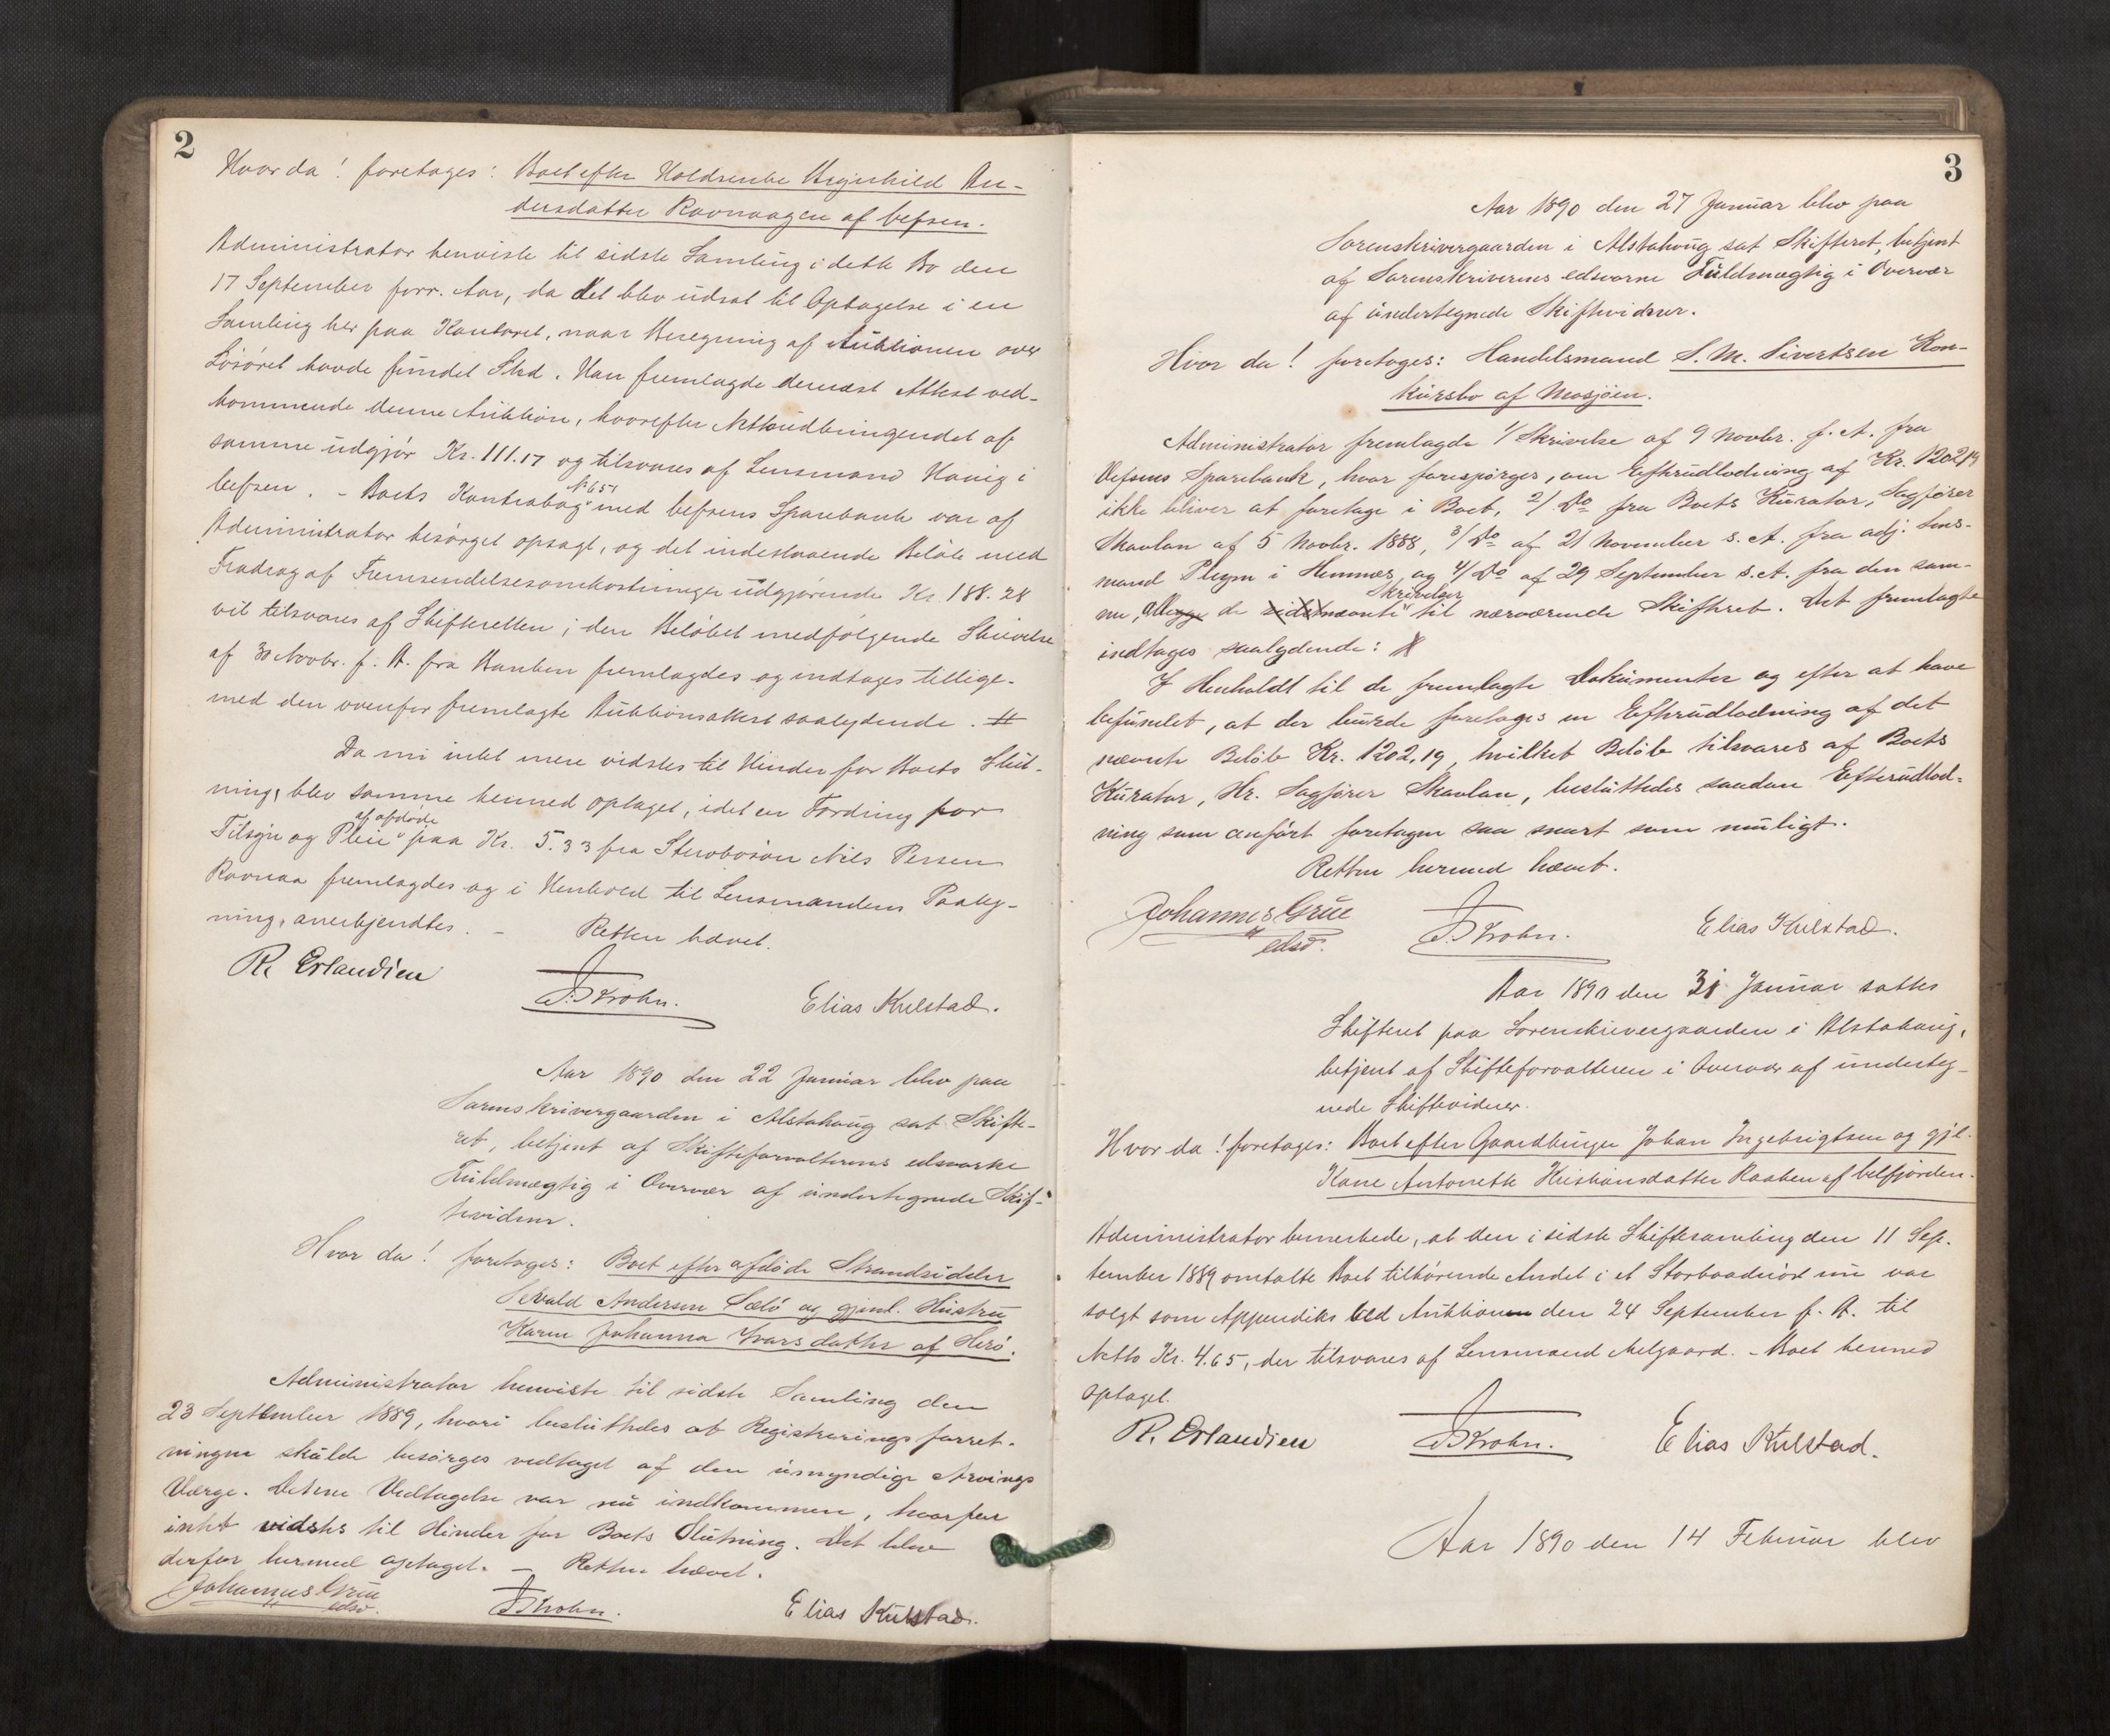 2
Hvor da! foretages: Boet efter Holdsenke Regnhild An-
dersdatter Ravnaagen af Vefsen.
Administrator henviste til sidste Samling i dette Bo den
17 September forr. Aar, da det blev udsat til Optagelse i en
Samling her paa Kontoret, naar Beregning af Auktionen over
Løsøret havde fundet Sted. Han fremlagde dernæst Attest ved-
kommende denne Auktion, hvorefter Nettoudbringendet af
samme udgjør Kr. 111.17 og tilsvares af Lensmand Havig i
Vefsen. - Boets Kontrabog No 651 med Vefsens Sparebank var af
Administrator besørget opsagt, og det indestaaende Beløb med
Fradrag af Fremsendelsesomkostninger udgjørende Kr. 188.28
vil tilsvares af Skifteretten; den Beløbet medfølgende Skrivelse
af 30 Novbr. f. A. fra Banken fremlagdes og indtages tillige-
med den ovenfor fremlagte Auktionsattest saalydende. #
Da nu intet mere vidstes til Hinder for Boets Slut-
ning, blev samme hermed optaget, idet en Fordring for
Tilsyn og Pleie af afdøde paa Kr. 5.33 fra Stuoboson Nils Persen
Ravnaa fremlagdes og i Henhold til Lensmandens Paateg-
ning, anerkjendtes. - Retten hævet.
R. Erlandsen
J. Krohn.
Elias Kulstad.
Aar 1890 den 22 Januar blev paa
Sorenskrivergaarden i Alstahaug sat Skifte-
ret, betjent af Skifteforvalterens edsvorne
Fuldmægtig i Overvær af undertegnede Skif-
tevidner.
Hvor da! foretages: Boet efter afdøde Strandsidder
Sevald Andersen Sælø og gjenl. Hustru
Karen Johanna Ivarsdatter af Herø.
Administrator henviste til sidste Samling den
23 September 1889, hvori besluttedes at Registreringsforret-
ningen skulde besørges vedtaget af den umyndige Arvings
Værge. Denne Vedtagelse var nu indkommen, hvorfor
intet vidstes til Hinder for Boets Slutning. Det blev
derfor hermed optaget. - Retten hævet.
Johannes Grue
edsv.
J. Krohn.
Elias Kulstad.
3
Aar 1890 den 27 Januar blev paa
Sorenskrivergaarden i Alstahoug sat Skifteret, betjent
af Sorenskriverens edsvorne Fuldmægtig i Overvær
af undertegnede Skiftevidner.
Hvor da! foretages: Handelsmand S. M. Sivertsen Kon-
kursbo af Mosjøen.
Administrator fremlagde 1/ Skrivelse af 9 Novbr. f. A. fra
Vefsens Sparebank, hvor forespørges, om Efterudlodning af Kr. 1202,19
ikke bliver at foretage i Boet, 2/ Do fra Boets Kurator, Sagfører
Skavlan af 5 Novbr. 1888, 3/ Do af 21 November s. A. fra adj. Lens-
mand Pleym i Hemnes, og 4/ Do af 29 September s. A. fra den sam-
me, de sidstnævnte Skrivelser til nærværende Skifteret. Det fremlagte
indtages saalydende: #
I Henhold til de fremlagte Dokumenter og efter at have
befundet, at der burde foretages en Efterudlodning af det
nævnte Beløb Kr. 1202,19, hvilket Beløb tilsvares af Boets
Kurator, Hr. Sagfører Skavlan, besluttedes saadan Efterudlod-
ning som anført foretagen saa snart som muligt.
Retten hermed hævet.
Johannes Grue
edsv.
J. Krohn.
Elias Kulstad.
Aar 1890 den 31 Januar sattes
Skifteret paa Sorenskrivergaarden i Alstahaug,
betjent af Skifteforvalteren i Overvær af underteg-
nede Skiftevidner.
Hvor da! foretages: Boet efter Gaardbruger Johan Ingebrigtsen og gjl.
Kone Antonette Kristiansdatter Raaken af Velfjorden.
Administrator bemerkede, at den i sidste Skiftesamling den 11 Sep-
tember 1889 omtalte Boet tilhørende Andel i et Storbaadnøst nu var
solgt som Appendiks ved Auktionen den 24 September f. A. til
Netto Kr. 4.65, der tilsvares af Lensmand Melgaard. - Boet hermed
optaget.
R. Erlandsen
J. Krohn.
Elias Kulstad.
Aar 1890 den 14 Februar blev